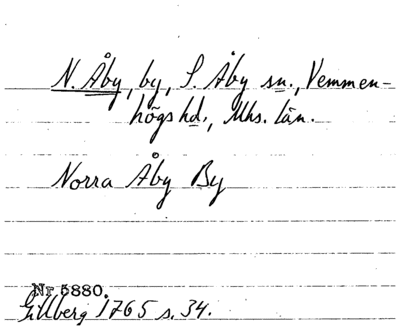 N. Åby, by, S. Åby sn., Vemmen-
högs hd., Mhs. län.
Norra Åby By
Nr 5880.
Gillberg 1765 s. 34.